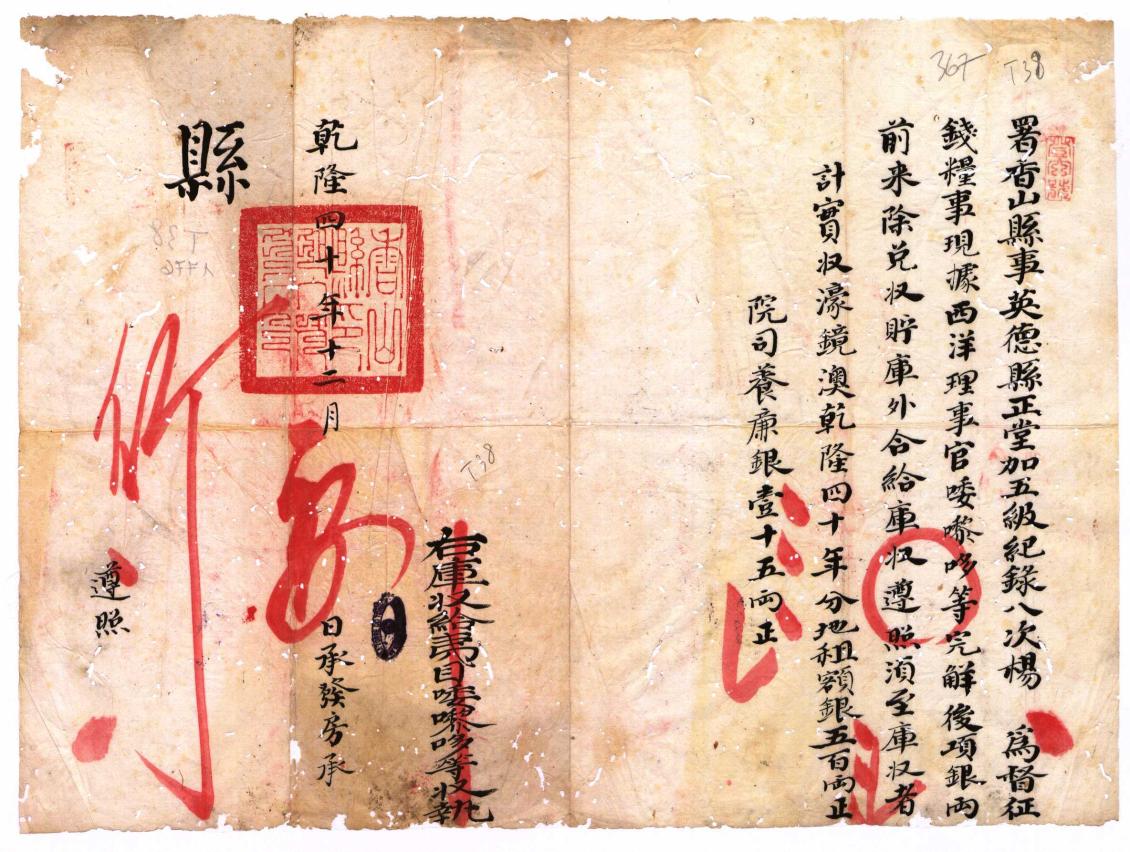 署香山縣事英德縣正堂加五級紀錄八次楊 爲督征
錢糧事現據西洋理事官唩嚟哆等完解後項銀両
前来除兑收貯庫外合給庫收遵照須至庫收者
計實收濠鏡澳乾隆四十年分地租額銀五百両正
院司養廉銀壹十五両正
右庫收給夷目唩嚟哆等收執
乾隆四十年十二月 日承發房承
縣
遵照
367
T38
T38
T38
1776
香山縣印